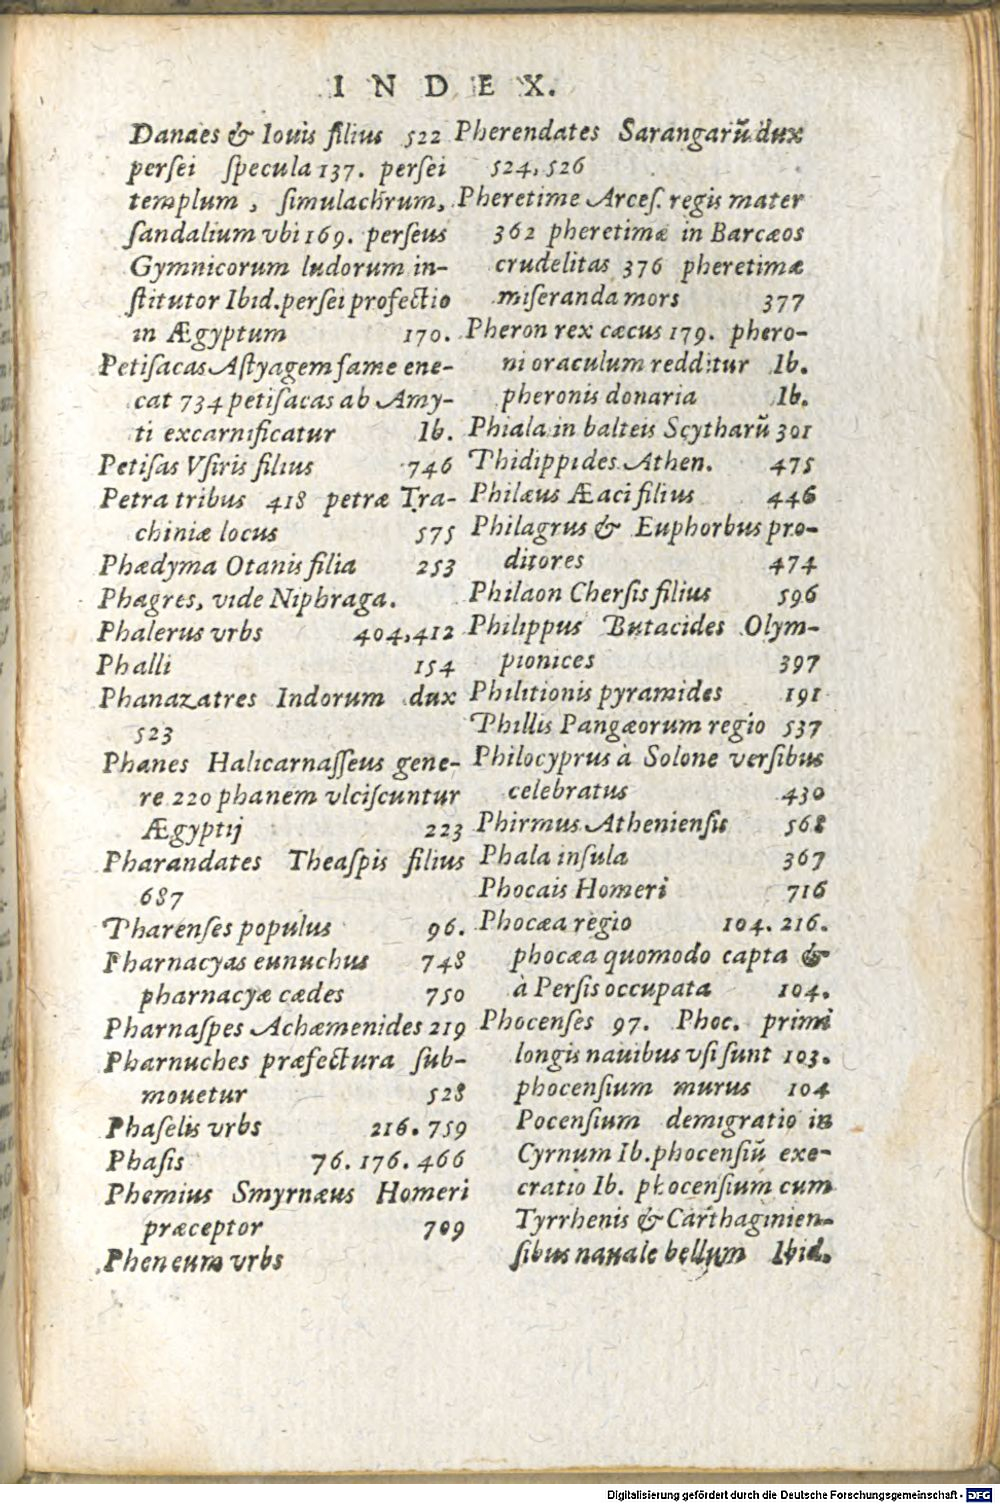 INDEX.
Danaes & Iouis filius 522
persei specula 137. persei
templum, simulachrum,
sandalium vbi 169. perseus
Gymnicorum ludorum in-
stitutor Ibid. persei profectio
in Ægyptum 170.
Petisacas Astyagem fame ene-
cat 734 petisacas ab Amy-
ti excarnificatur Ib.
Petisas Vsiris filius 746
Petra tribus 418 petræ Tra-
chiniæ locus 575
Phædyma Otanis filia 253
Phagres, vide Niphraga.
Phalerus vrbs 404, 412
Phalli 154
Phanazatres Indorum dux
523
Phanes Halicarnasseus gene-
re 220 phanem vlciscuntur
Ægyptij 223
Pharandates Theaspis filius
687
Pharenses populus 96.
Pharnacyas eunuchus 748
pharnacyæ cædes 750
Pharnaspes Achæmenides 219
Pharnuches præfectura sub-
mouetur 528
Phaselis vrbs 216. 759
Phasis 76. 176. 466
Phemius Smyrnæus Homeri
præceptor 709
Pheneum vrbs
Pherendates Sarangarũ dux
524, 526
Pheretime Arces. regis mater
362 pheretimæ in Barcæos
crudelitas 376 pheretimæ
miseranda mors 377
Pheron rex cæcus 179. phero-
ni oraculum redditur Ib.
pheronis donaria Ib.
Phiala in balteis Scytharũ 301
Phidippides Athen. 475
Philæus Æaci filius 446
Philagrus & Euphorbus pro-
ditores 474
Philaon Chersis filius 596
Philippus Butacides Olym-
pionices 397
Philitionis pyramides 191
Phillis Pangæorum regio 537
Philocyprus à Solone versibus
celebratus 430
Phirmus Atheniensis 568
Phala insula 367
Phocais Homeri 716
Phocæa regio 104. 216.
phocæa quomodo capta &
à Persis occupata 104.
Phocenses 97. Phoc. primi
longis nauibus vsi sunt 103.
phocensium murus 104
Pocensium demigratio in
Cyrnum Ib. phocensiũ exe-
cratio Ib. phocensium cum
Tyrrhenis & Carthaginien-
sibus nauale bellum Ibid.
Digitalisierung gefördert durch die Deutsche Forschungsgemeinschaft - DFG